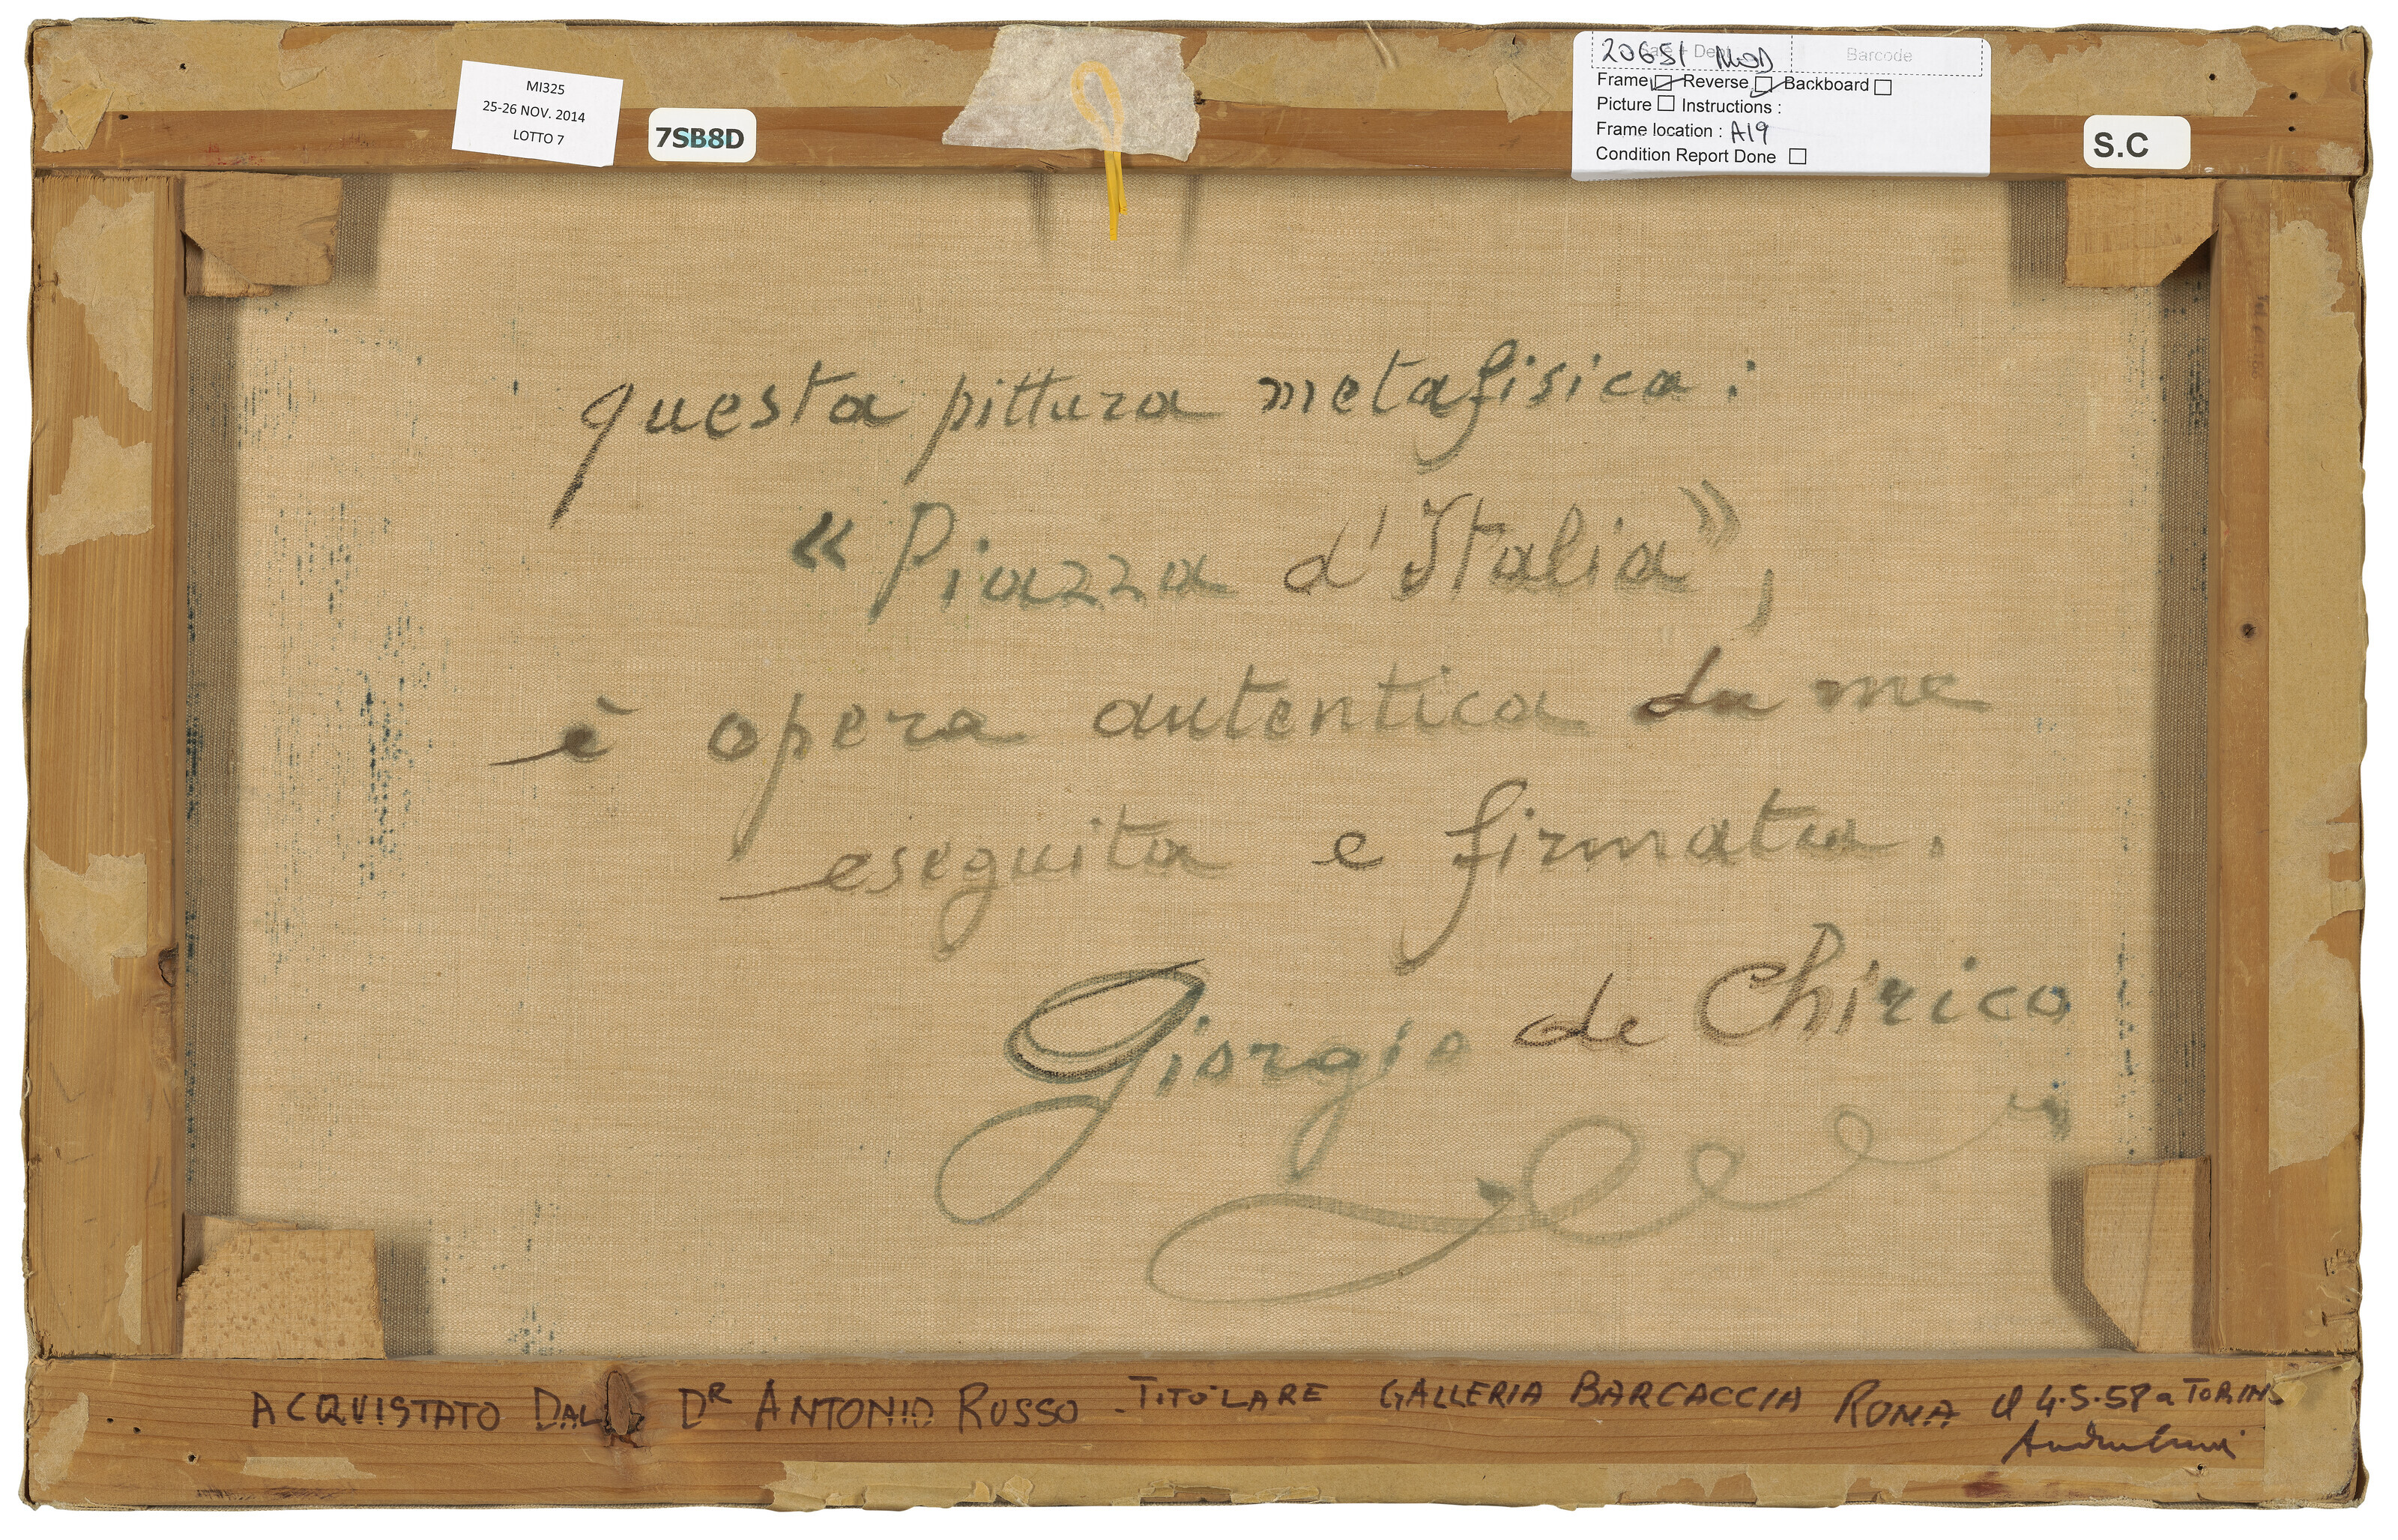 MI325
25-26 NOV. 2014
LOTTO 7
7SB8D
20651 MOD
Barcode
Frame Reverse Backboard
Picture Instructions :
Frame location : A19
Condition Report Done
S.C
questa pittura metafisica:
« Piazza d'Italia »,
è opera autentica da me
eseguita e firmata.
Giorgio de Chirico
ACQUISTATO DAL DR ANTONIO RUSSO - TITOLARE GALLERIA BARCACCIA ROMA il 4.5.58 a TORINO